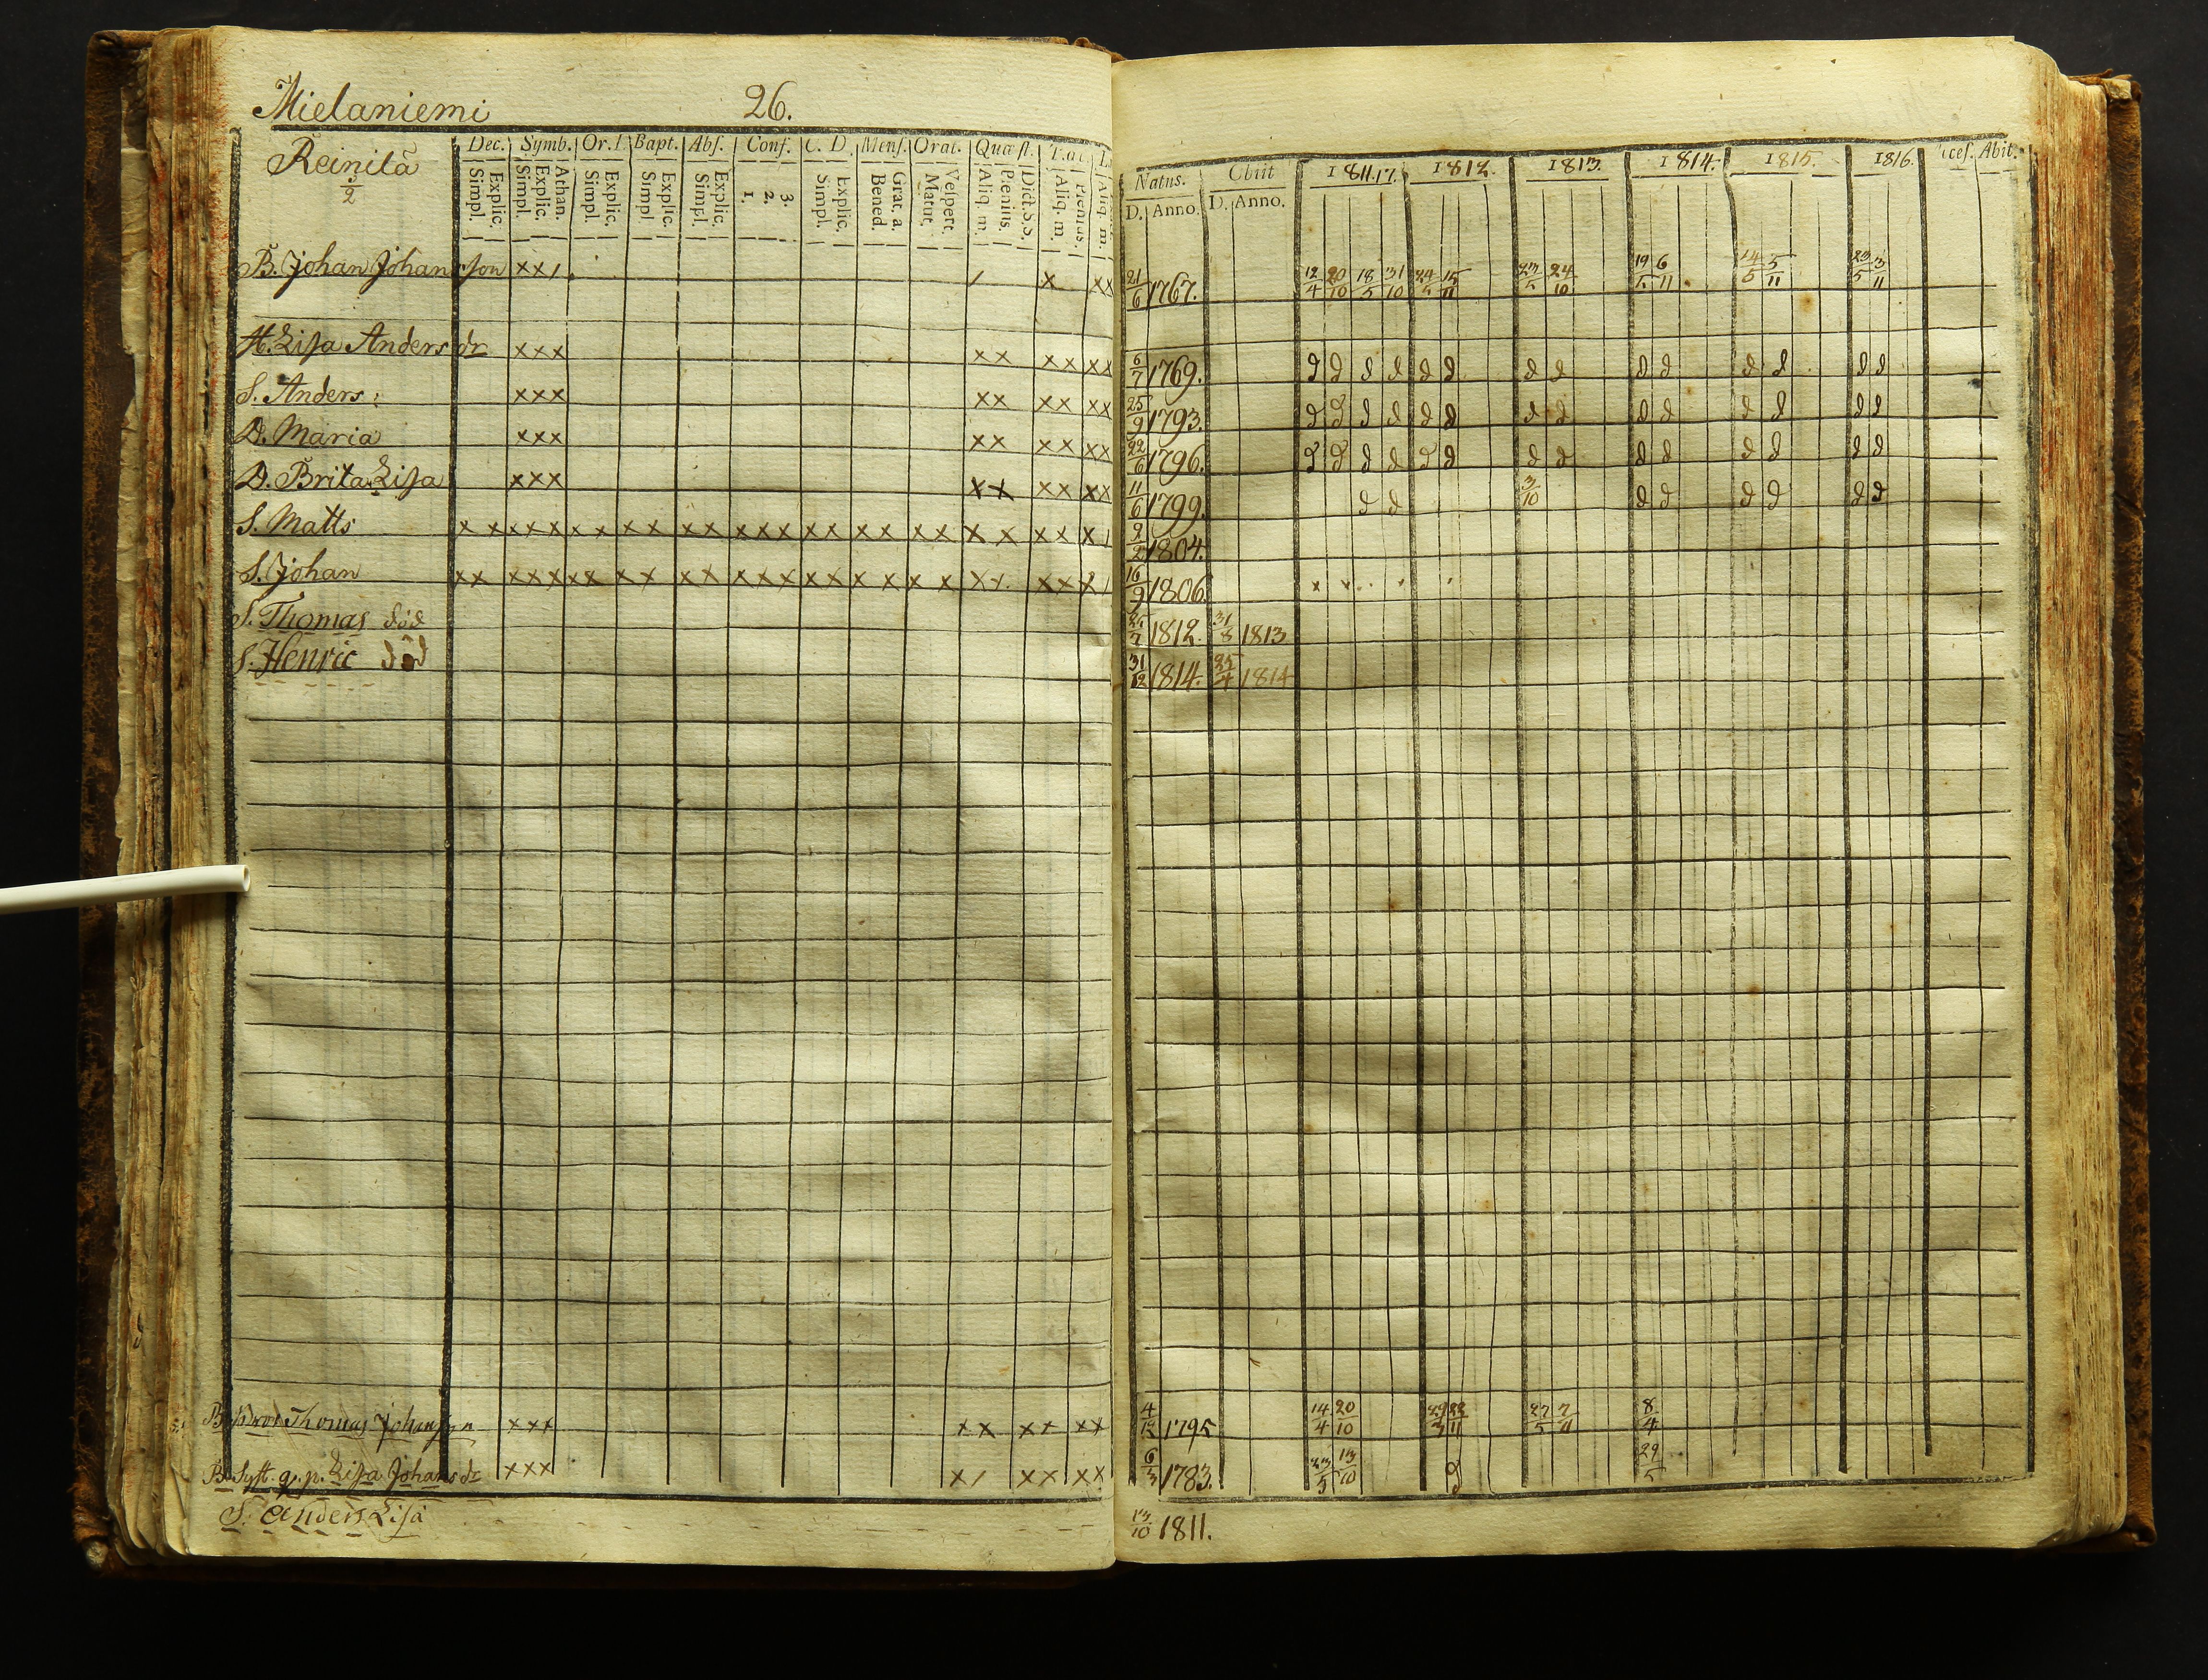 Mielaniemi 26.
Reinilä
Dec. Symb. Or. Bapt. Abs. Conf. C. D. Mens. Orat. Quæst.
Explic. Simpl. Athan. Explic. Simpl. Explic. Simpl. Explic. Simpl. Explic. Simpl. 3. 2. 1. Explic. Simpl. Grat. a. Bened. Vespert. Matut. Dict. S.S. Plenius. Aliq. m. Plenius. Aliq. m. Aliq. m.
Natus. Obiit 1811.17. 1812. 1813. 1814. 1815. 1816. Abit.
D. Anno. D. Anno.
B. Johan Johansson xx/ / x xx 21/6 1767. 12/4 20/10 18/5 31/10 15/11 24/10 19/5 6/11 14/5 5/11 23/5 3/11
H. Lisa Anders dr xxx xx xx xx 6/7 1769. d d d d d d d d d d d d d d
S. Anders xxx xx xx xx 25/9 1793. d d d d d d d d d d d d d d
D. Maria xxx xx xx xx 22/6 1796. d d d d d d d d d d d d d d
D. Brita Lisa xxx xx xx xx 11/6 1799. d d 3/10 d d d d d d
S. Matts x x x x x x x x x x x x x x x x x x x x x x x x x x x x / 9/2 1804.
S. Johan xx xxx xx xx xx xxx xx x x x x x xx xx x / 16/9 1806.
S. Thomas död 1812. 31/8 1813
S. Henric död 31/12 1814. 25/4 1814
B. Bror Thomas Johansson xxx xx xx xx 4/12 1795 14/4 20/10 27/5 7/11 8/4
B. Syst. q. p. Lisa Johans dr xxx x/ xx xx 6/3 1783. 23/5 13/10 d 29/5
S. Anders Lisa 13/10 1811.